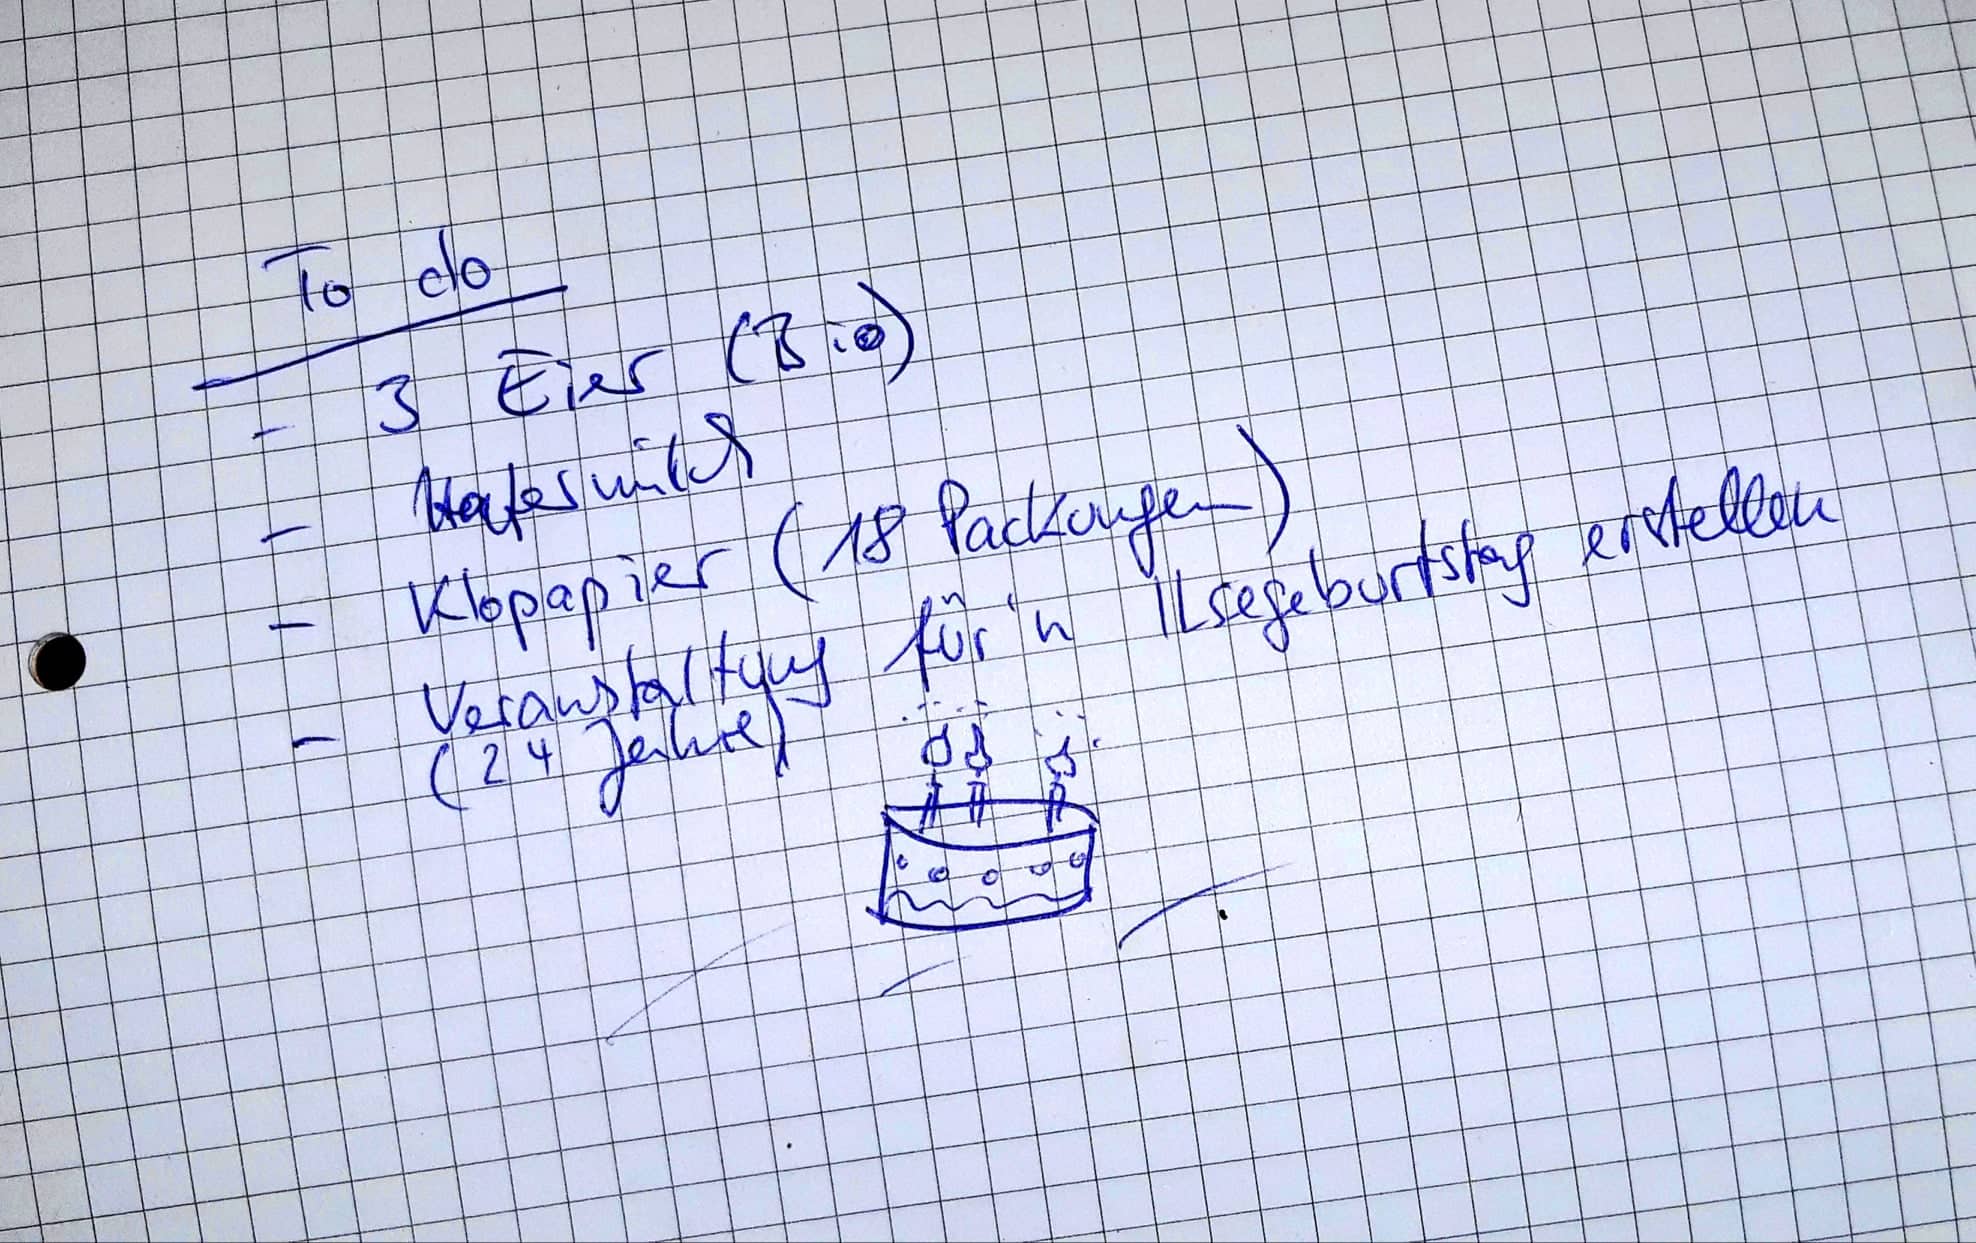 To do
- 3 Eier (Bio)
- Hafermilch
- Klopapier (18 Packungen)
- Veranstaltung für'n Ilsegeburtstag erstellen
(24 Jahre)